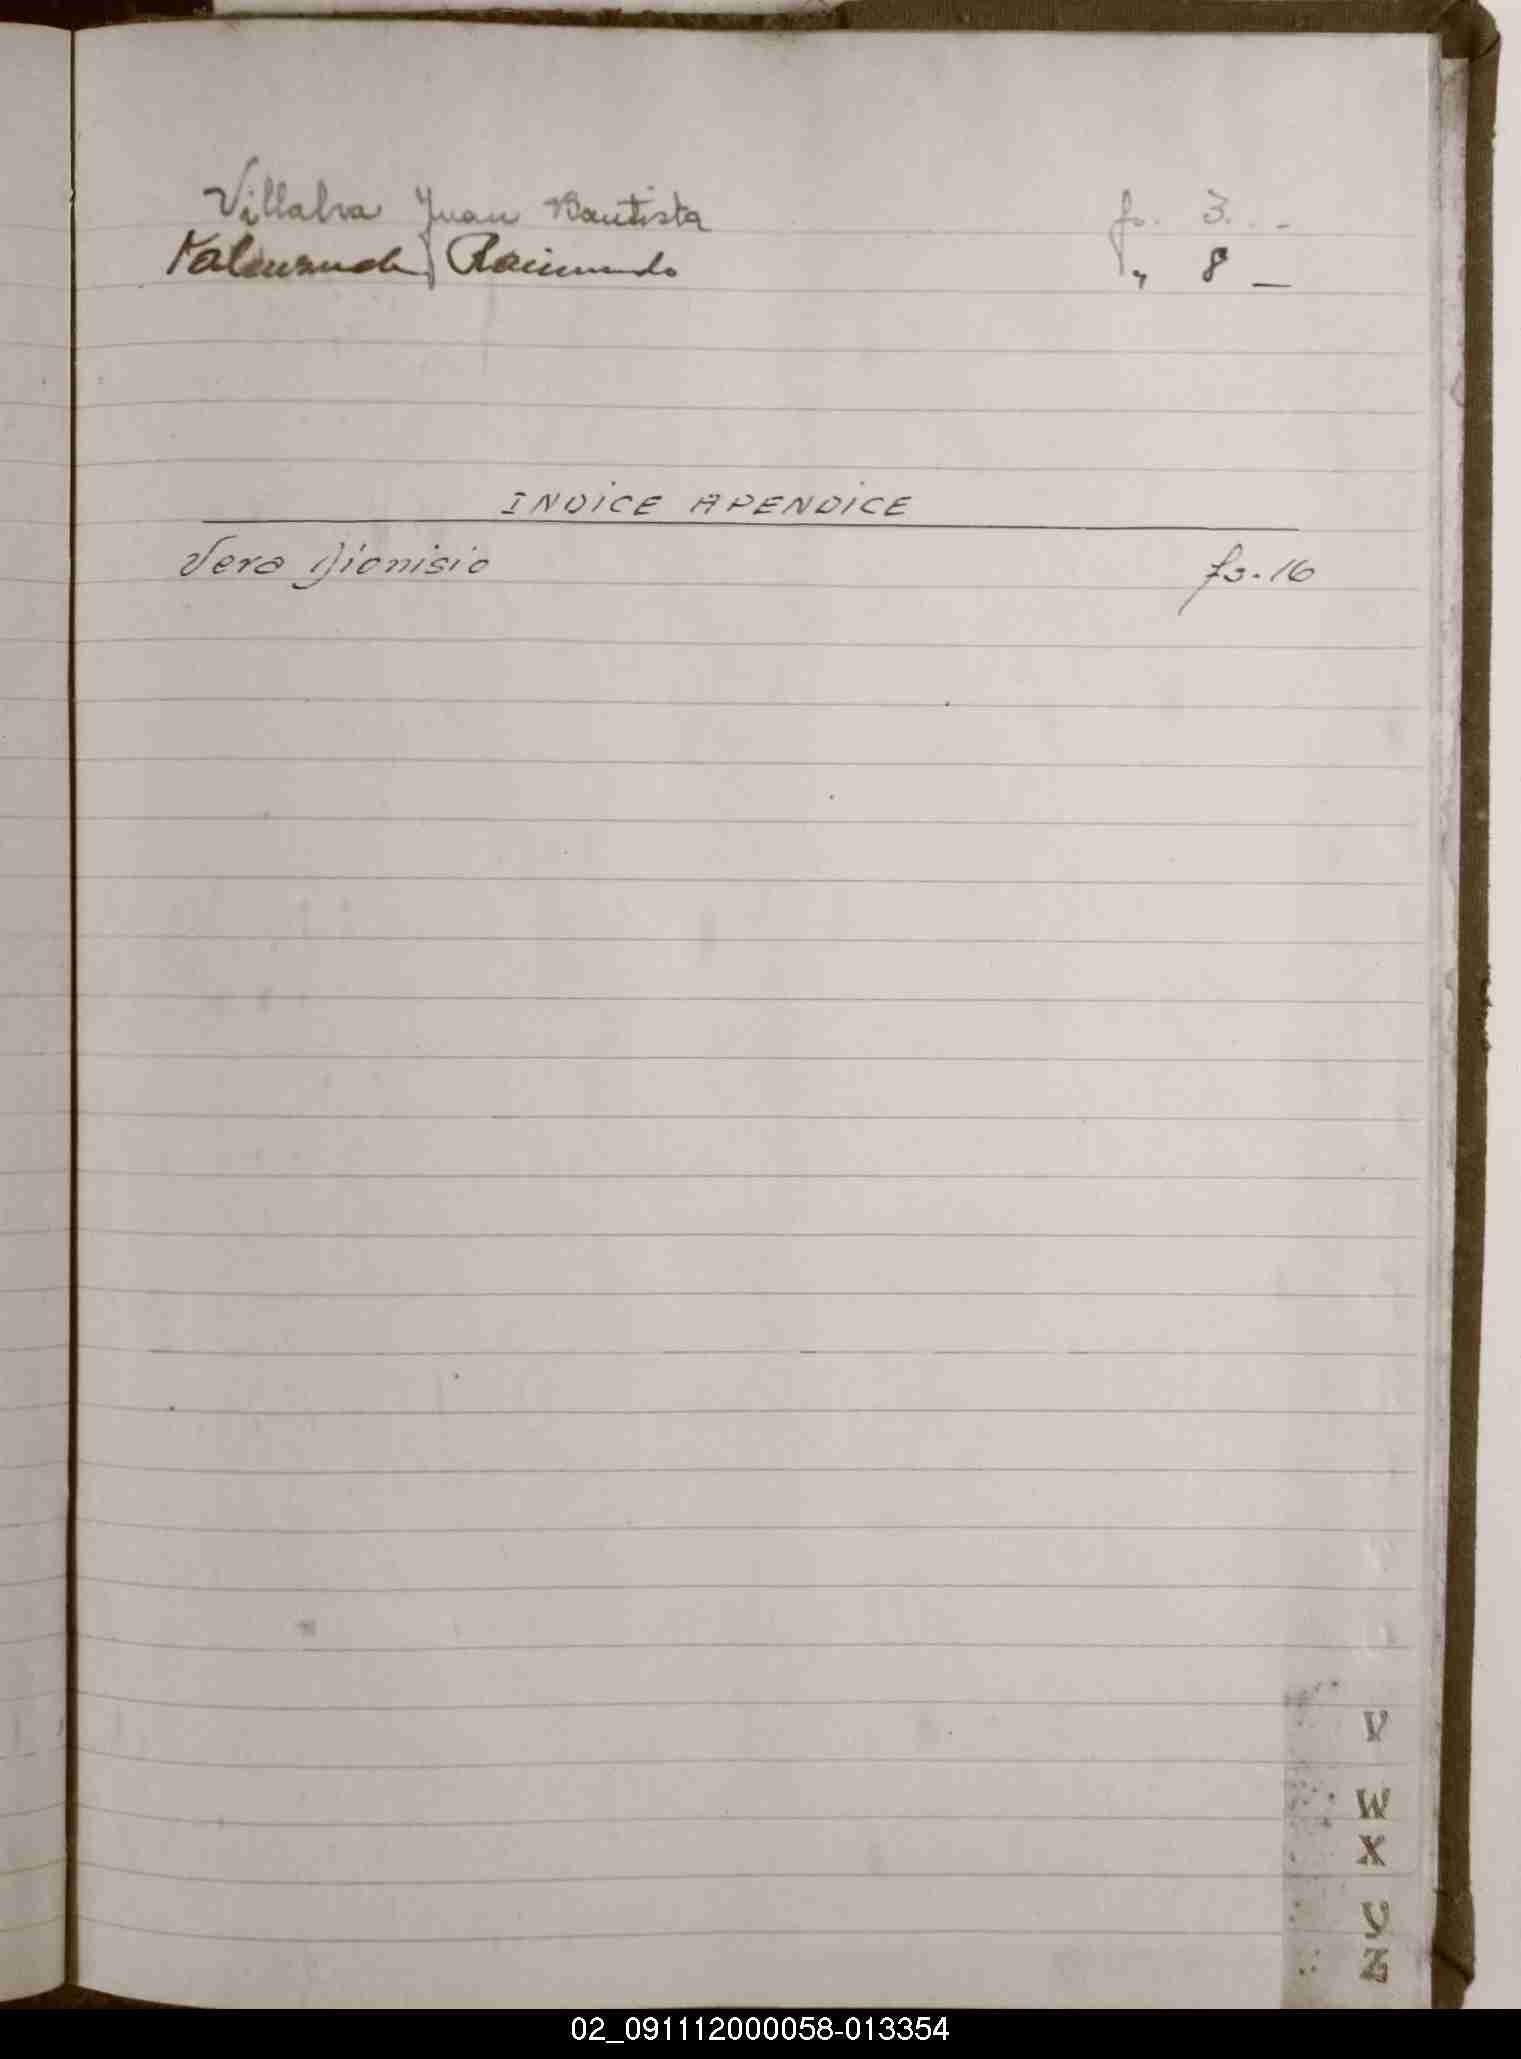 Villalva Juan Bautista fs. 3. . -
Raimundo " 8 _
INDICE APENDICE
Vera Dionisio fs. 16
V
W
X
Y
Z
02_091112000058-013354